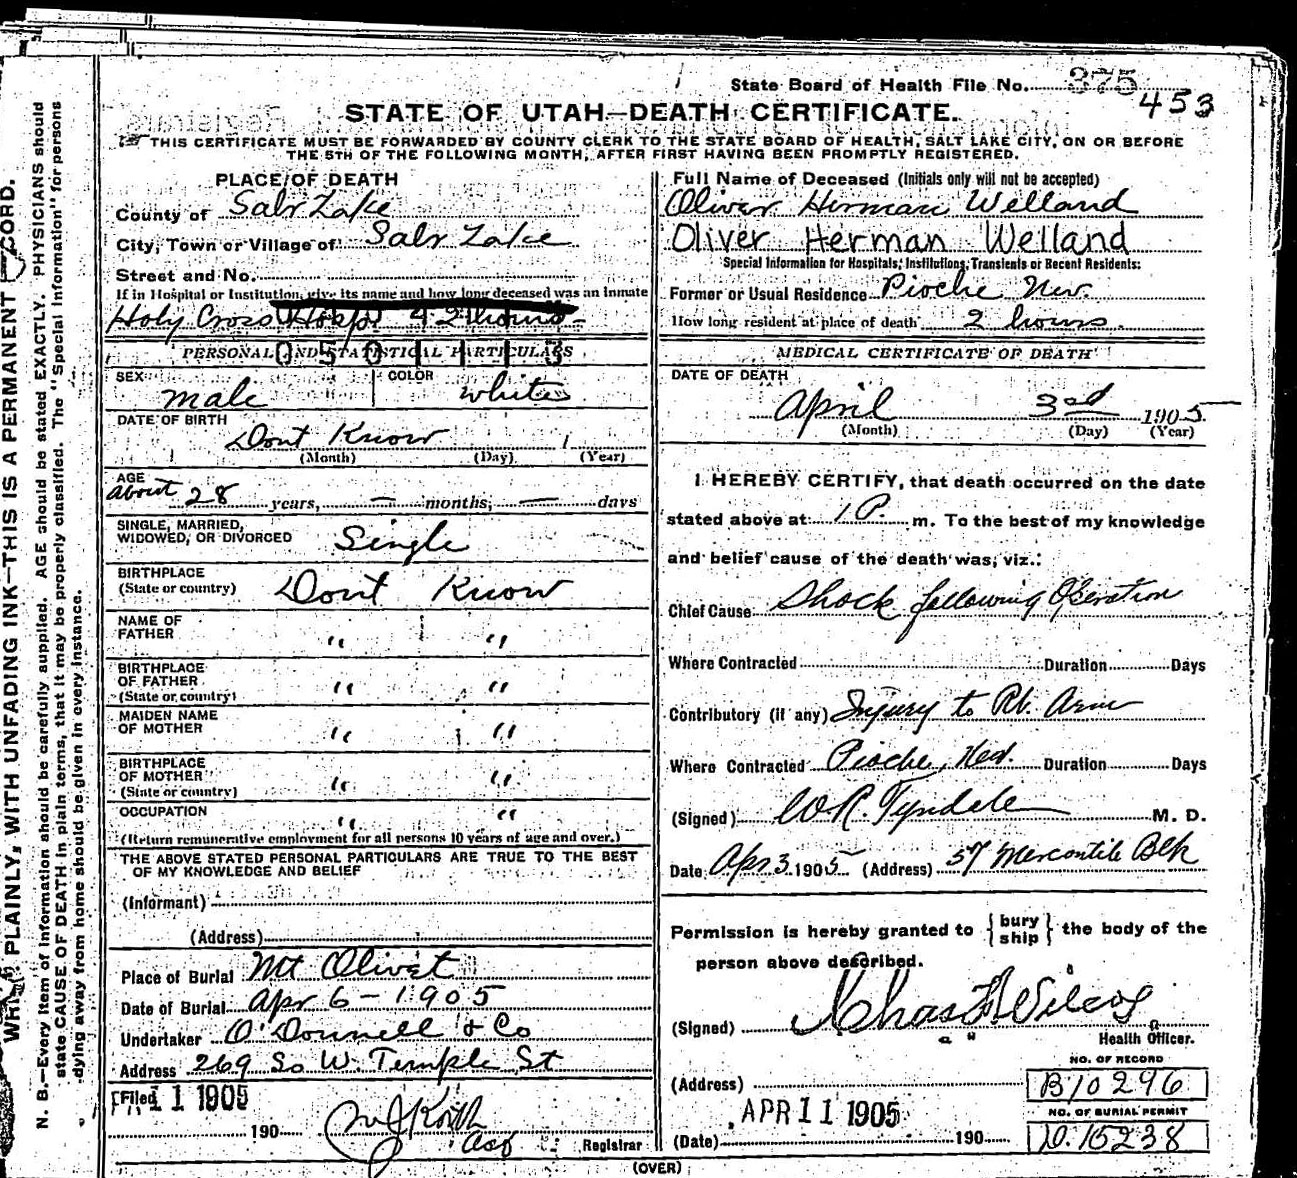 WRITE PLAINLY, WITH UNFADING INK—THIS IS A PERMANENT RECORD.
N. B.—Every item of information should be carefully supplied. AGE should be stated EXACTLY. PHYSICIANS should
state CAUSE OF DEATH in plain terms, that it may be properly classified. The "Special Information" for persons
dying away from home should be given in every instance.
State Board of Health File No. 375
453
STATE OF UTAH—DEATH CERTIFICATE.
THIS CERTIFICATE MUST BE FORWARDED BY COUNTY CLERK TO THE STATE BOARD OF HEALTH, SALT LAKE CITY, ON OR BEFORE
THE 5TH OF THE FOLLOWING MONTH, AFTER FIRST HAVING BEEN PROMPTLY REGISTERED.
PLACE OF DEATH
County of Salt Lake
City, Town or Village of Salt Lake
Street and No.
If in Hospital or Institution, give its name and how long deceased was an inmate
Holy Cross Hosp. 2 hours
PERSONAL AND STATISTICAL PARTICULARS
SEX male
COLOR white
DATE OF BIRTH
Dont Know 1
(Month) (Day) (Year)
AGE
about 28 years, — months, — days
SINGLE, MARRIED,
WIDOWED, OR DIVORCED Single
BIRTHPLACE
(State or country) Dont Know
NAME OF
FATHER " "
BIRTHPLACE
OF FATHER " "
(State or country)
MAIDEN NAME
OF MOTHER " "
BIRTHPLACE
OF MOTHER " "
(State or country)
OCCUPATION " "
(Return remunerative employment for all persons 10 years of age and over.)
THE ABOVE STATED PERSONAL PARTICULARS ARE TRUE TO THE BEST
OF MY KNOWLEDGE AND BELIEF
(Informant)
(Address)
Place of Burial Mt Olivet
Date of Burial Apr 6 - 1905
Undertaker O'Donnell & Co
Address 269 So W. Temple St
Filed 11 1905
190
Registrar
Full Name of Deceased (Initials only will not be accepted)
Oliver Herman Welland
Oliver Herman Welland
Special Information for Hospitals, Institutions, Transients or Recent Residents:
Former or Usual Residence Pioche Nev.
How long resident at place of death 2 hours.
MEDICAL CERTIFICATE OF DEATH
DATE OF DEATH
April 3rd 1905
(Month) (Day) (Year)
I HEREBY CERTIFY, that death occurred on the date
stated above at 1 P. m. To the best of my knowledge
and belief cause of the death was, viz.:
Chief Cause Shock following Operation
Where Contracted Duration Days
Contributory (if any) Injury to Rt. Arm
Where Contracted Pioche, Nev. Duration Days
(Signed) W.R. Tyndale M. D.
Date Apr 3 1905 (Address) 57 Mercantile Blk
Permission is hereby granted to { bury ship } the body of the
person above described.
(Signed) Chas F Wilcox
Health Officer.
(Address)
NO. OF RECORD
B10296
APR 11 1905
(Date) 190
NO. OF BURIAL PERMIT
D.15238
(OVER)